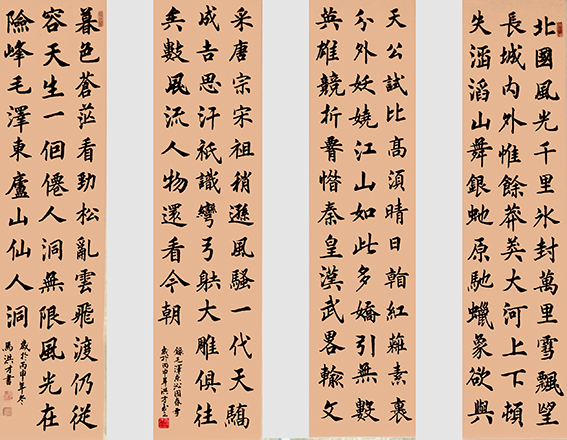 北國風光千里冰封萬里雪飄望
長城内外惟餘莽莽大河上下頓
失滔滔山舞銀蛇原馳蠟象欲與
天公試比高須晴日看紅裝素裹
分外妖嬈江山如此多嬌引無數
英雄競折腰惜秦皇漢武畧輸文
采唐宗宋祖稍遜風騷一代天驕
成吉思汗祇識彎弓射大雕俱往
矣數風流人物還看今朝
錄毛澤東沁園春雪
歲於丙申年洪才書
暮色蒼茫看勁松亂雲飛渡仍從
容天生一個僊人洞無限風光在
險峰毛澤東廬山仙人洞
歲於丙申年冬
馬洪才書